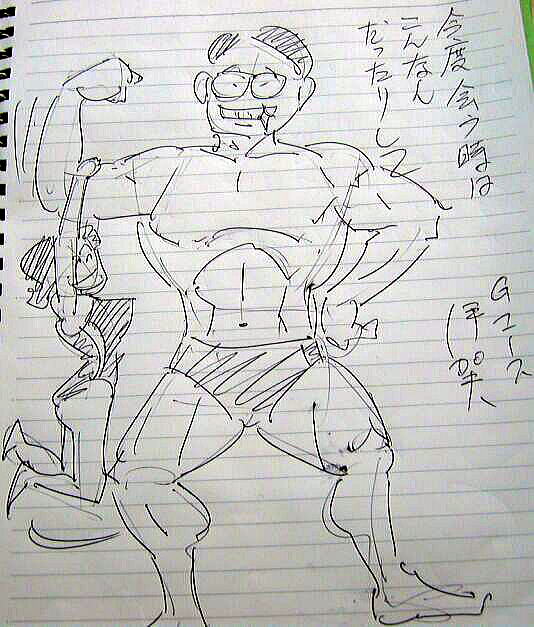 今度会う時は
こんなん
だったりして
Gコース